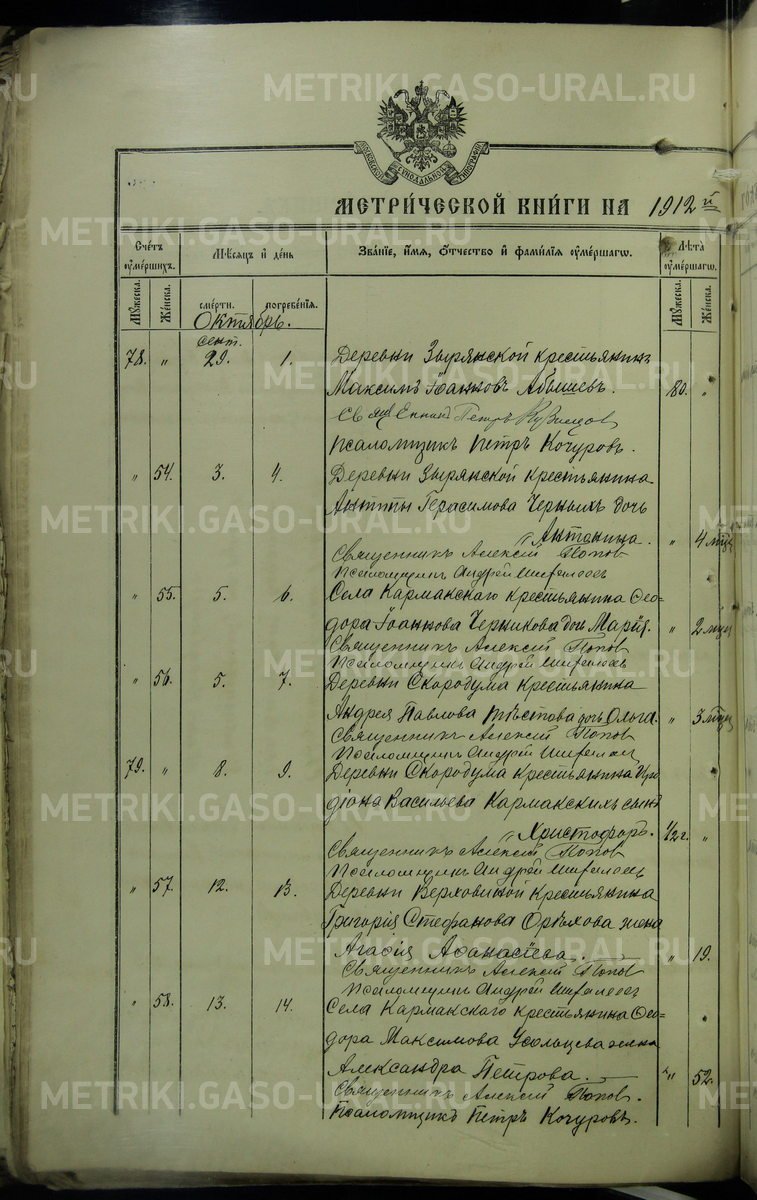 METRIKI.GASO-URAL.RU
МЕТРИ́ЧЕСКОЙ КНИ́ГИ НА 1912й
Счетъ ѹмершихъ.
Мѣсяцъ и день
Званїе, имя, отчество и фамилїя ѹмершагѡ.
Лѣта ѹмершагѡ.
Мужеска. Женска.
смерти. погребенїя.
Мужеска. Женска.
Октябрь.
сент.
78. " 29. 1. Деревни Зырянской крестьянинъ
Максимъ Іоанновъ Абышевъ. 80. "
Петръ
Псаломщикъ Петръ Кочуровъ.
" 54. 3. 4. Деревни Зырянской крестьянина
Антипы Герасимова Черныхъ дочь
Антонина. " 4 мѣц
Священникъ Алексій Попов
Псаломщикъ Андрей
" 55. 5. 6. Села Кармакскаго крестьянина Ѳео-
дора Іоаннова Черникова дочь Марія. " 2 мѣц
Священникъ Алексій Попов
Псаломщикъ Андрей
" 56. 5. 7. Деревни Скородума крестьянина
Андрея Павлова дочь Ольга. " 3 мѣц
Священникъ Алексій Попов
Псаломщикъ Андрей
79. " 8. 9. Деревни Скородума крестьянина Иро-
діона Васильева Кармакскихъ сынъ
Христофоръ. 1/2 г. "
Священникъ Алексій Попов
Псаломщикъ Андрей
" 57. 12. 13. Деревни Верховиной крестьянина
Григорія Стефанова Орѣхова жена
Агафія Аѳанасіева. " 19.
Священникъ Алексій Попов
Псаломщикъ Андрей
" 58. 13. 14. Села Кармакскаго крестьянина Ѳео-
дора Максимова Усольцева жена
Александра Петрова. " 52.
Священникъ Алексій Попов.
Псаломщикъ Петръ Кочуровъ.